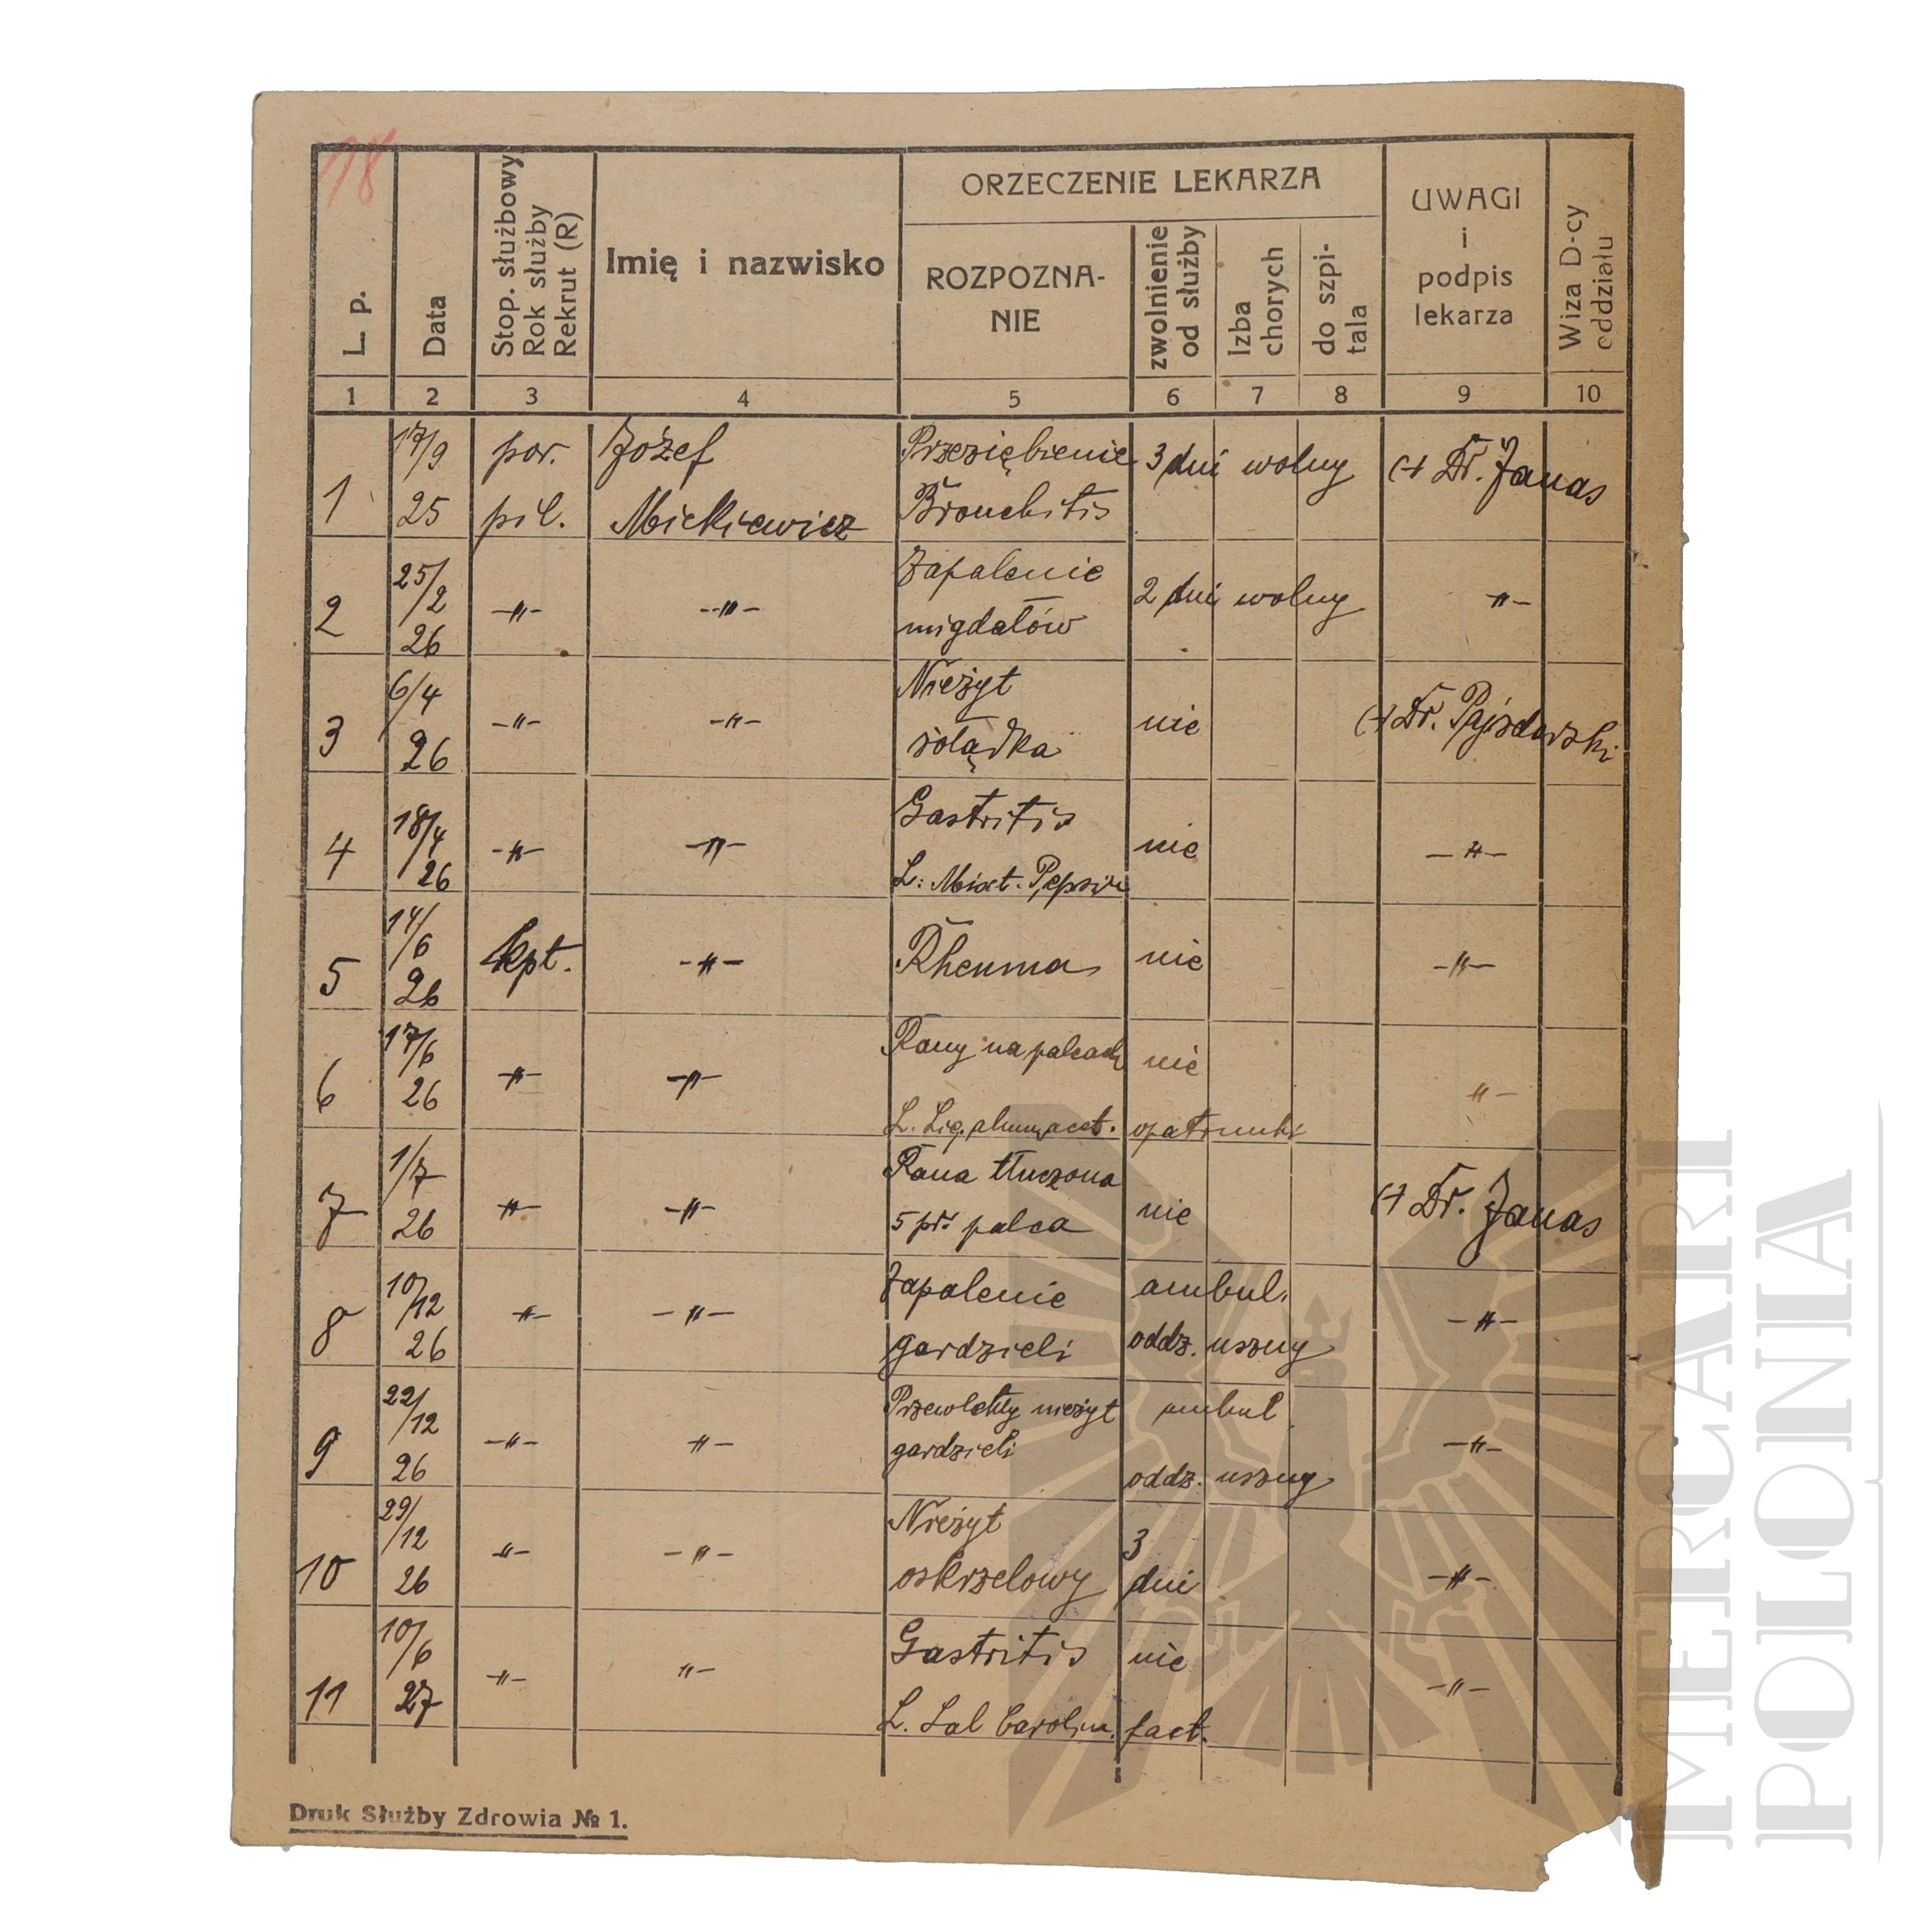 18
L. p.
Data
Stop. służbowy
Rok służby
Rekrut (R)
Imię i nazwisko
ORZECZENIE LEKARZA
ROZPOZNA-
NIE
zwolnienie
od służby
Izba
chorych
do szpi-
tala
UWAGI
i
podpis
lekarza
Wiza D-cy
oddziału
1 2 3 4 5 6 7 8 9 10
17/9 por. Józef Przeziębienie 3 dni wolny (-) Dr. Janas
1 25 pil. Mickiewicz Bronchitis
25/2 Zapalenie
2 -"- -"- 2 dni wolny -"-
26 migdałów
6/4 Nieżyt
3 -"- -"- nie (-) Dr. Pajzdarski
26 żołądka
18/4 Gastritis
4 -"- -"- nie -"-
26 L: Mixt. Pepsin
14/6
5 kpt. -"- Rheuma nie -"-
26
17/6 Rany na palcach nie
6 26 -"- -"- -"-
L. Liq. alum. acet. opatrunki
1/7 Rana tłuczona
7 -"- -"- nie (-) Dr. Janas
26 5 pr. palca
10/12 Zapalenie ambul.
8 -"- -"- -"-
26 gardzieli oddz. uszny
22/12 Przewlekły nieżyt ambul
9 -"- -"- gardzieli -"-
26 oddz. uszny
29/12 Nieżyt 3
10 -"- -"- -"-
26 oskrzelowy dni
10/6 Gastritis nie
11 27 -"- -"- -"-
L. Sal Carolin. fact.
Druk Służby Zdrowia № 1.
MERCARI
POLONIA